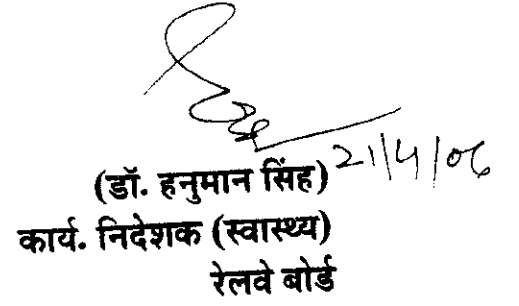 21/4/06
(डॉ. हनुमान सिंह)
कार्य. निदेशक (स्वास्थ्य)
रेलवे बोर्ड